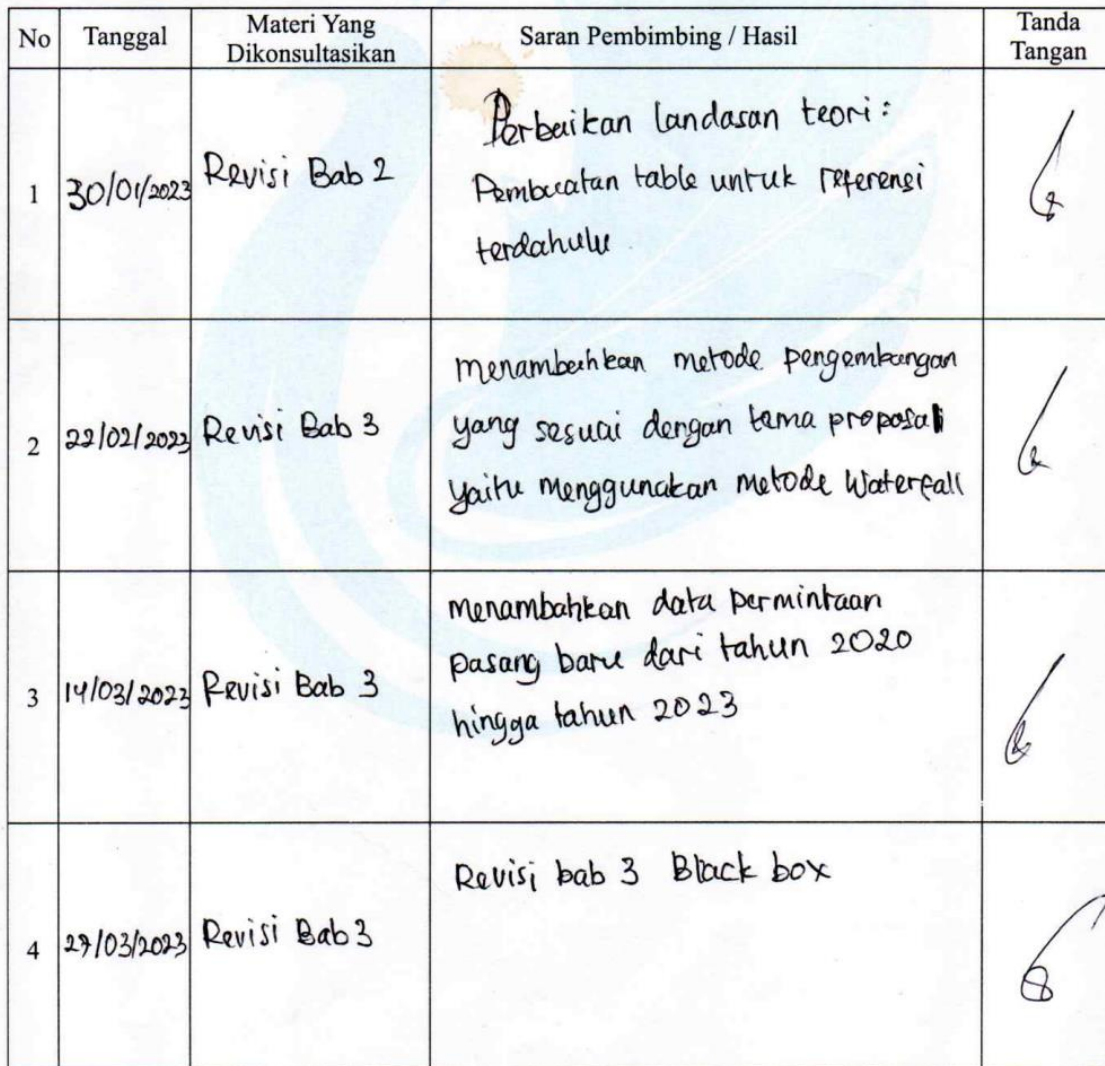 No Tanggal Materi Yang Dikonsultasikan Saran Pembimbing / Hasil Tanda Tangan
1 30/01/2023 Revisi Bab 2
Perbaikan landasan teori:
Pembuatan table untuk referensi
terdahulu
2 22/02/2023 Revisi Bab 3
menambahkan metode pengembangan
yang sesuai dengan tema proposal
yaitu menggunakan metode Waterfall
3 14/03/2023 Revisi Bab 3
menambahkan data permintaan
pasang baru dari tahun 2020
hingga tahun 2023
4 27/03/2023 Revisi Bab 3
Revisi bab 3 Black box